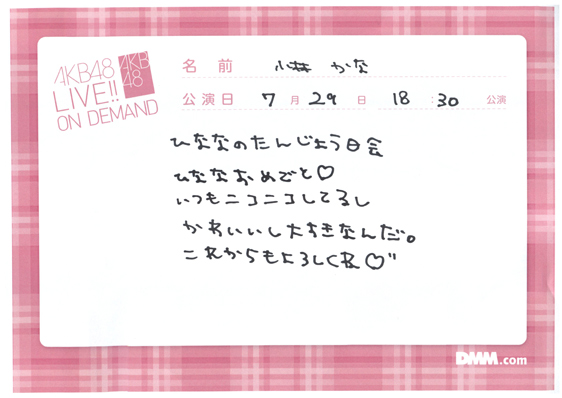 AKB48
LIVE!!
ON DEMAND
AKB
48
名前 小林 かな
公演日 7月29日 18:30 公演
ひななのたんじょう日会
ひななおめでと♡
いつもニコニコしてるし
かわいいし大すきなんだ。
これからもよろしくね♡"
DMM.com